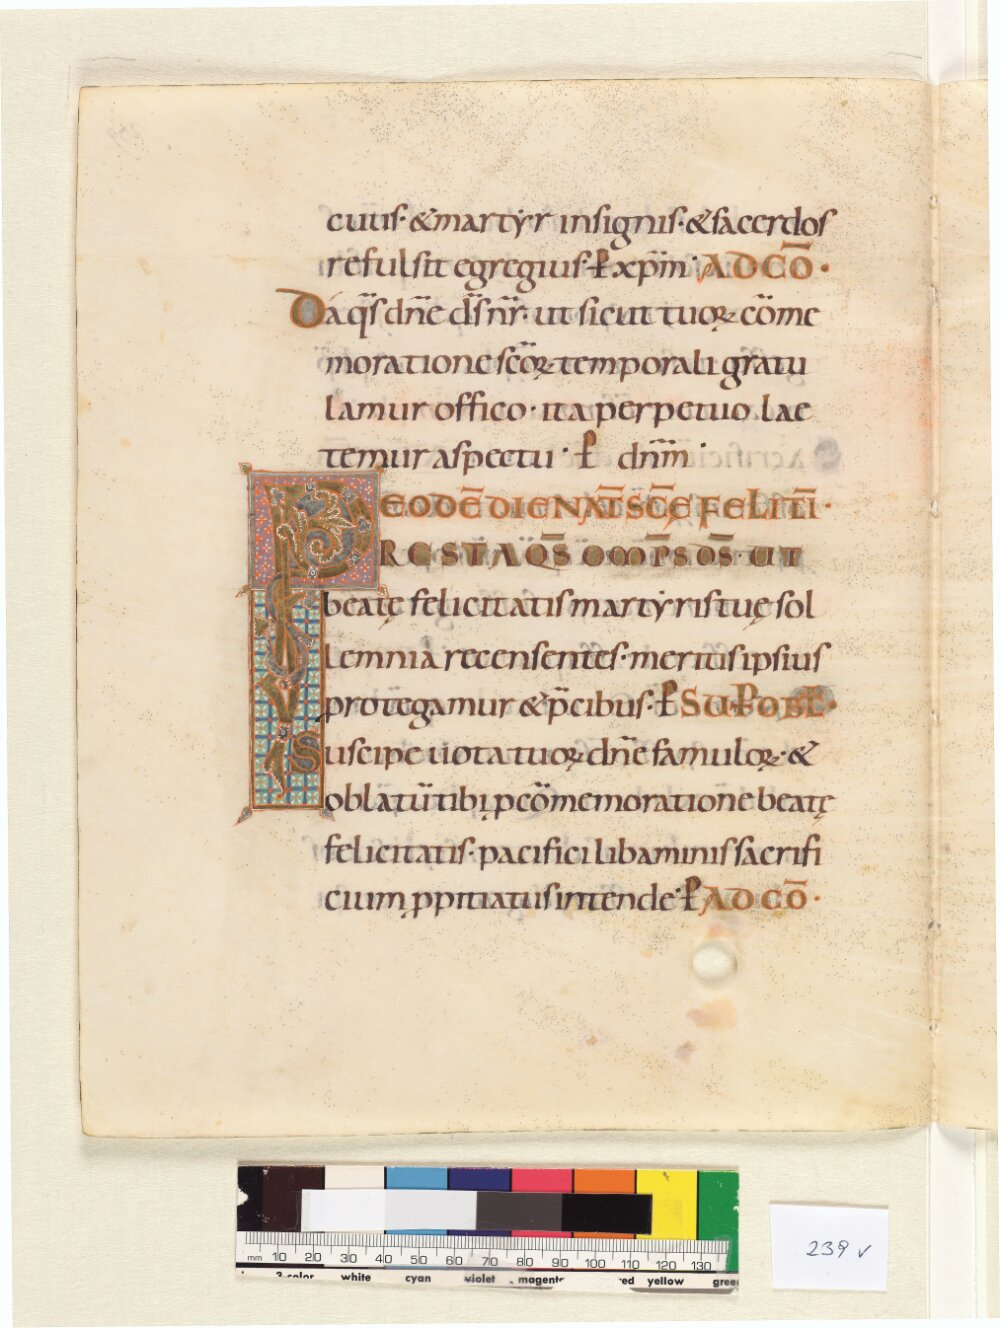 cuius· & martẏr insignis· & sacerdos
refulsit egregius· P xp̄m· AD CŌ·
Da q̄s dn̄e d̄s nr̄· ut sicut tuoꝝ cōme
moratione sc̄oꝝ temporali gratu
lamur offico· ita perpetuo lae
temur aspectu· P dn̄m·
EODĒ DIE NAT̄ SC̄E FELITĪ·
PRESTA Q̄S OMP̄S D̄S· UT
beatę felicitatis martẏris tuę sol
lemnia recensentes· meritis ipsius
protegamur & p̄cibus· P SUP OBL·
Suscipe uota tuoꝝ dn̄e famuloꝝ· &
oblatū tibi ꝓ cōmemoratione beatę
felicitatis· pacifici libaminis sacrifi
cium ꝓpitiatus intende· P AD CŌ·
mm 10 20 30 40 50 60 70 80 90 100 110 120 130
3-color white cyan violet magenta red yellow green
239 v